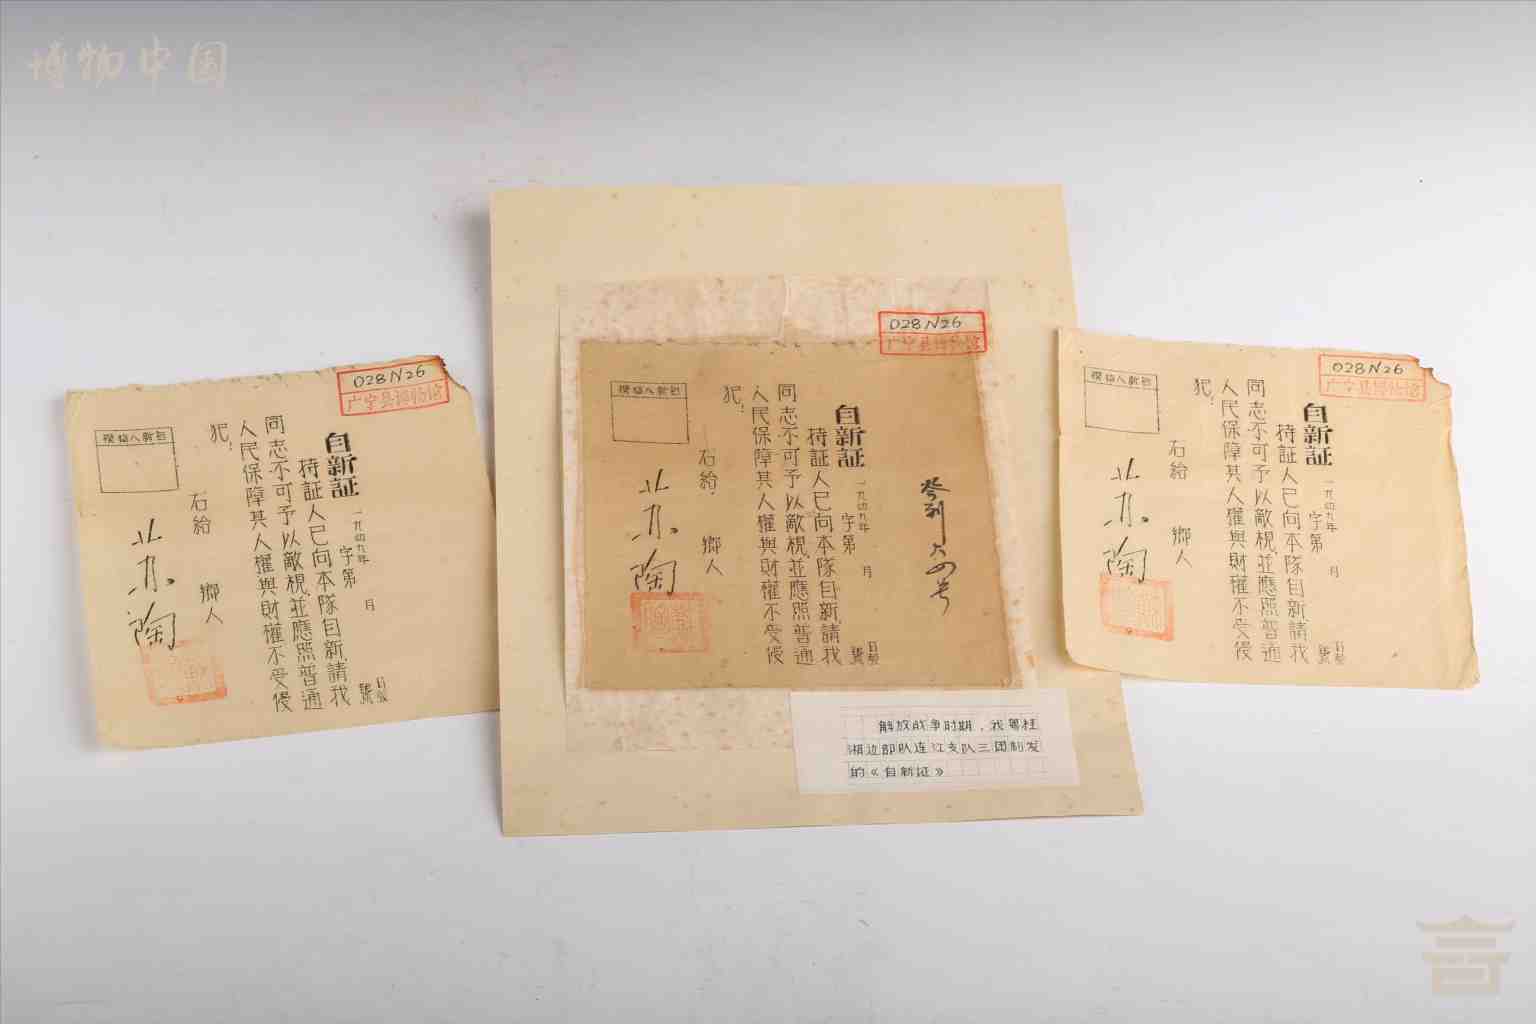 博物中国
028N26
广宁县博物馆
自新証
一九四九年 月 日發
字第 號
持証人已向本隊自新,請我
同志不可予以敵視,並應照普通
人民保障其人權與財權不受侵
犯!
右給 鄉人
自新人指模
028N26
广宁县博物馆
自新証
一九四九年 月 日發
字第 號
持証人已向本隊自新,請我
同志不可予以敵視,並應照普通
人民保障其人權與財權不受侵
犯!
右給 鄉人
自新人指模
解放战争时期,我粤桂
湘边部队连江支队三团制发
的《自新证》
028N26
广宁县博物馆
自新証
一九四九年 月 日發
字第 號
持証人已向本隊自新,請我
同志不可予以敵視,並應照普通
人民保障其人權與財權不受侵
犯!
右給 鄉人
自新人指模